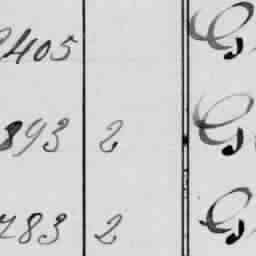 2405 G
893 2 G
783 2 G